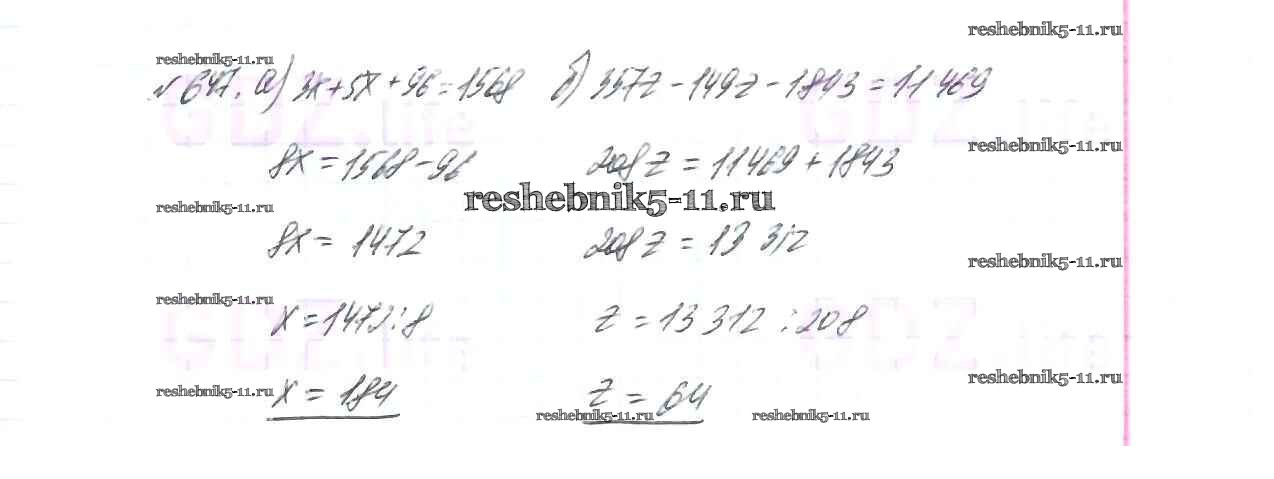 reshebnik5-11.ru
reshebnik5-11.ru
№ 647. а) 3x+5x+96=1568 б) 357z-149z-1843=11469
GDZ.life GDZ.life
reshebnik5-11.ru
8x=1568-96 208z=11469+1843
reshebnik5-11.ru
reshebnik5-11.ru
8x=1472 208z=13 312
reshebnik5-11.ru
reshebnik5-11.ru
x=1472:8 z=13 312:208
GDZ.life GDZ.life
reshebnik5-11.ru
reshebnik5-11.ru
x=184 z=64
reshebnik5-11.ru reshebnik5-11.ru